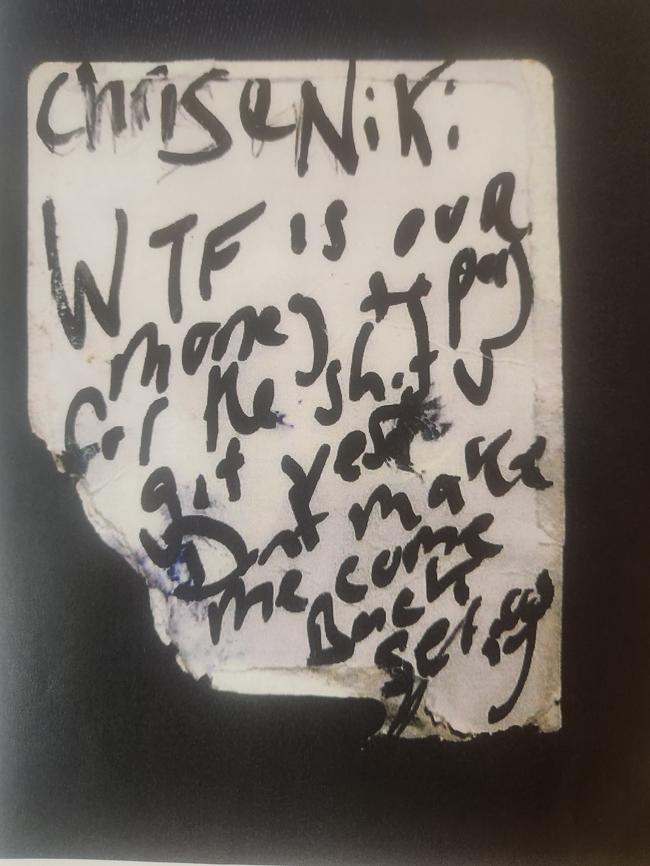 Chris e Niki:
WTF is our
money to pay
for the shit U
got yest
Dont make
me come
Back